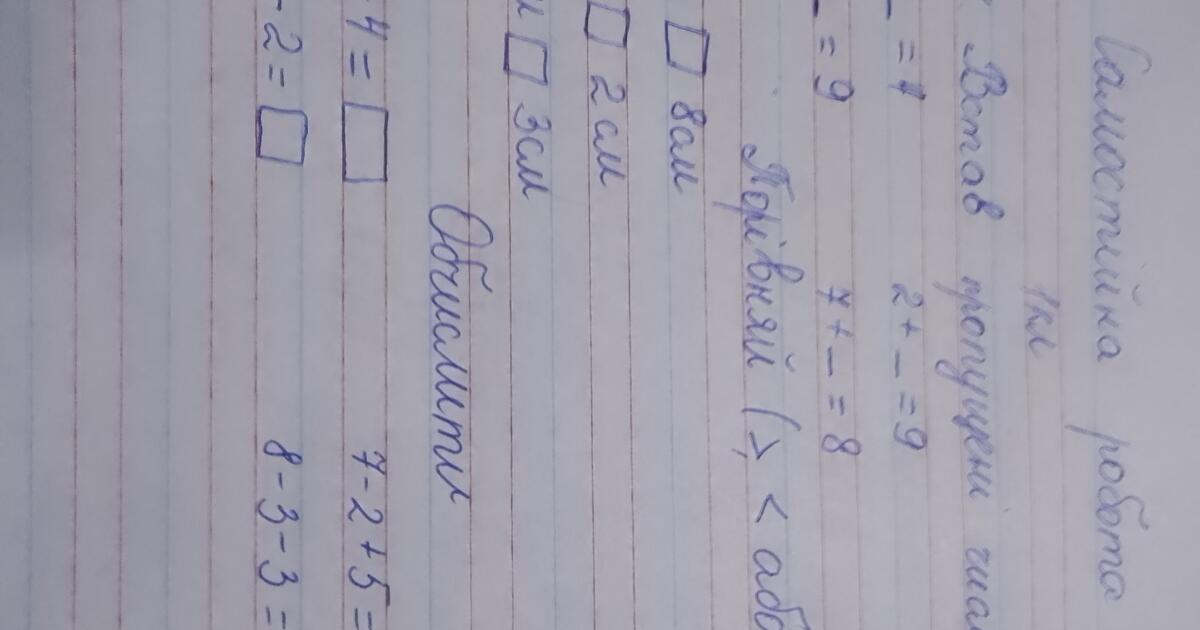 Самостійна робота
1кл
Встав пропущені
= 7 2 + _ = 9
_ = 9 7 + _ = 8
Порівняй (>, < або
□ 8см
□ 2см
□ 3см
Обчислити
4 = □ 7 - 2 + 5 =
- 2 = □ 8 - 3 - 3 =